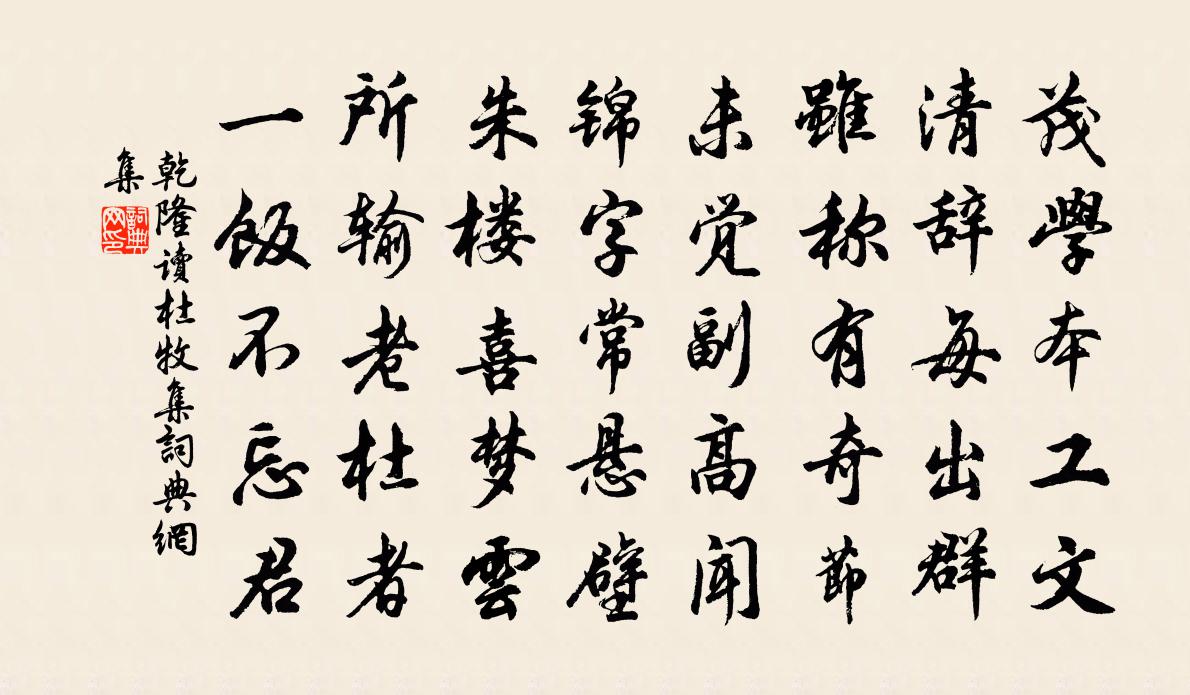 茂學本工文
清辞每出群
雖称有奇節
未觉副高闻
锦字常悬壁
朱楼喜梦雲
所输老杜者
一饭不忘君
乾隆讀杜牧集詞典網
集
詞典
网印